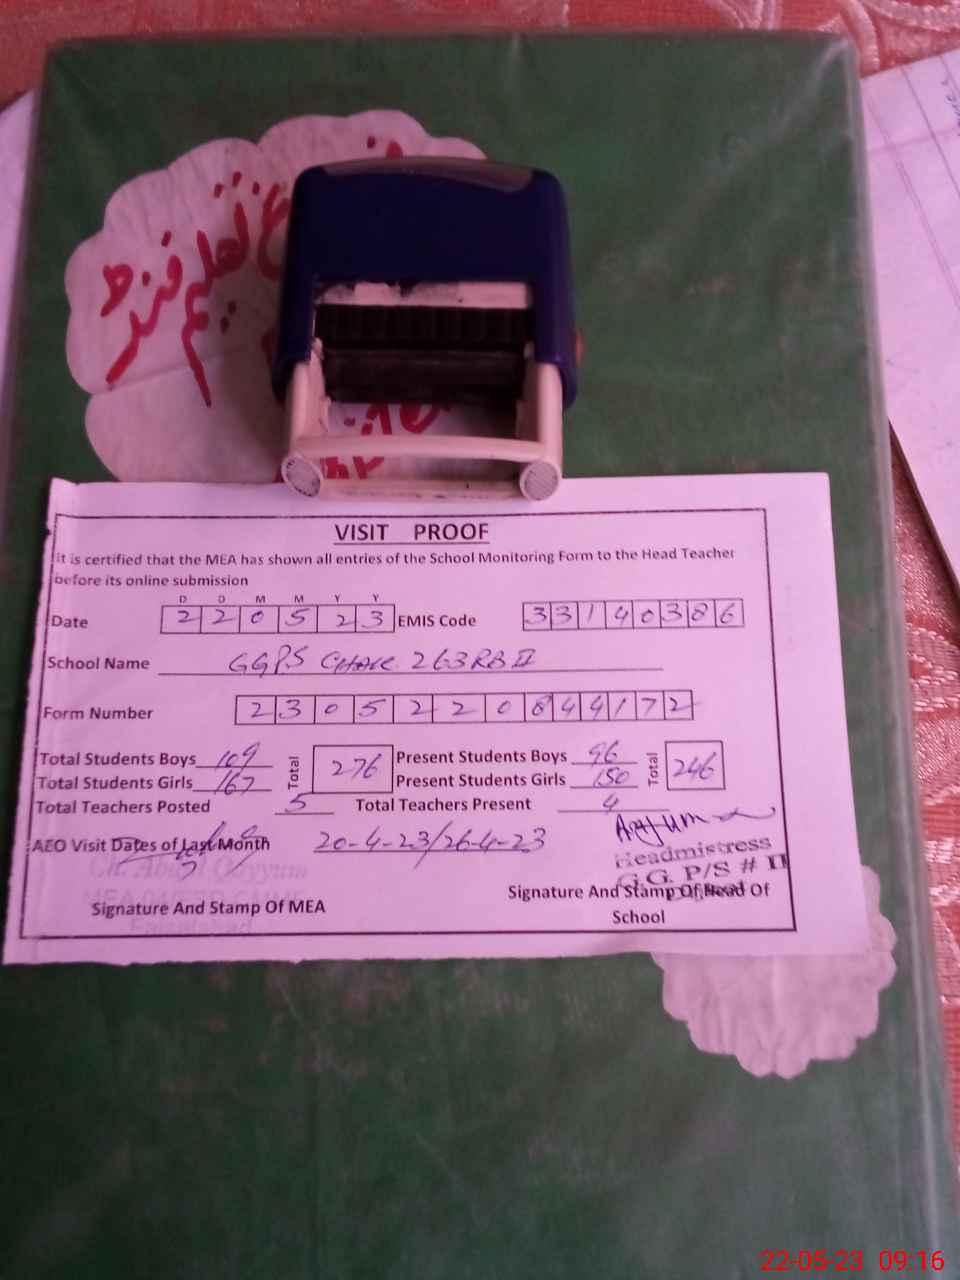 فروغ تعلیم فنڈ
VISIT PROOF
It is certified that the MEA has shown all entries of the School Monitoring Form to the Head Teacher
before its online submission
D D M M Y Y
Date 2 2 0 5 2 3 EMIS Code 3 3 1 4 0 3 8 6
School Name GGPS CHAK 263 RB II
Form Number 2 3 0 5 2 2 0 8 4 4 1 7 2
Total Students Boys 109 Total 276 Present Students Boys 96 Total 246
Total Students Girls 167 Present Students Girls 150
Total Teachers Posted 5 Total Teachers Present 4
AEO Visit Dates of Last Month 20-4-23/26-4-23
Anjum
Headmistress
G.G. P/S # II
Ch. Abdul Qayyum
Faisalabad
Signature And Stamp Of MEA
Signature And Stamp Of Head Of
School
22-05-23 09:16